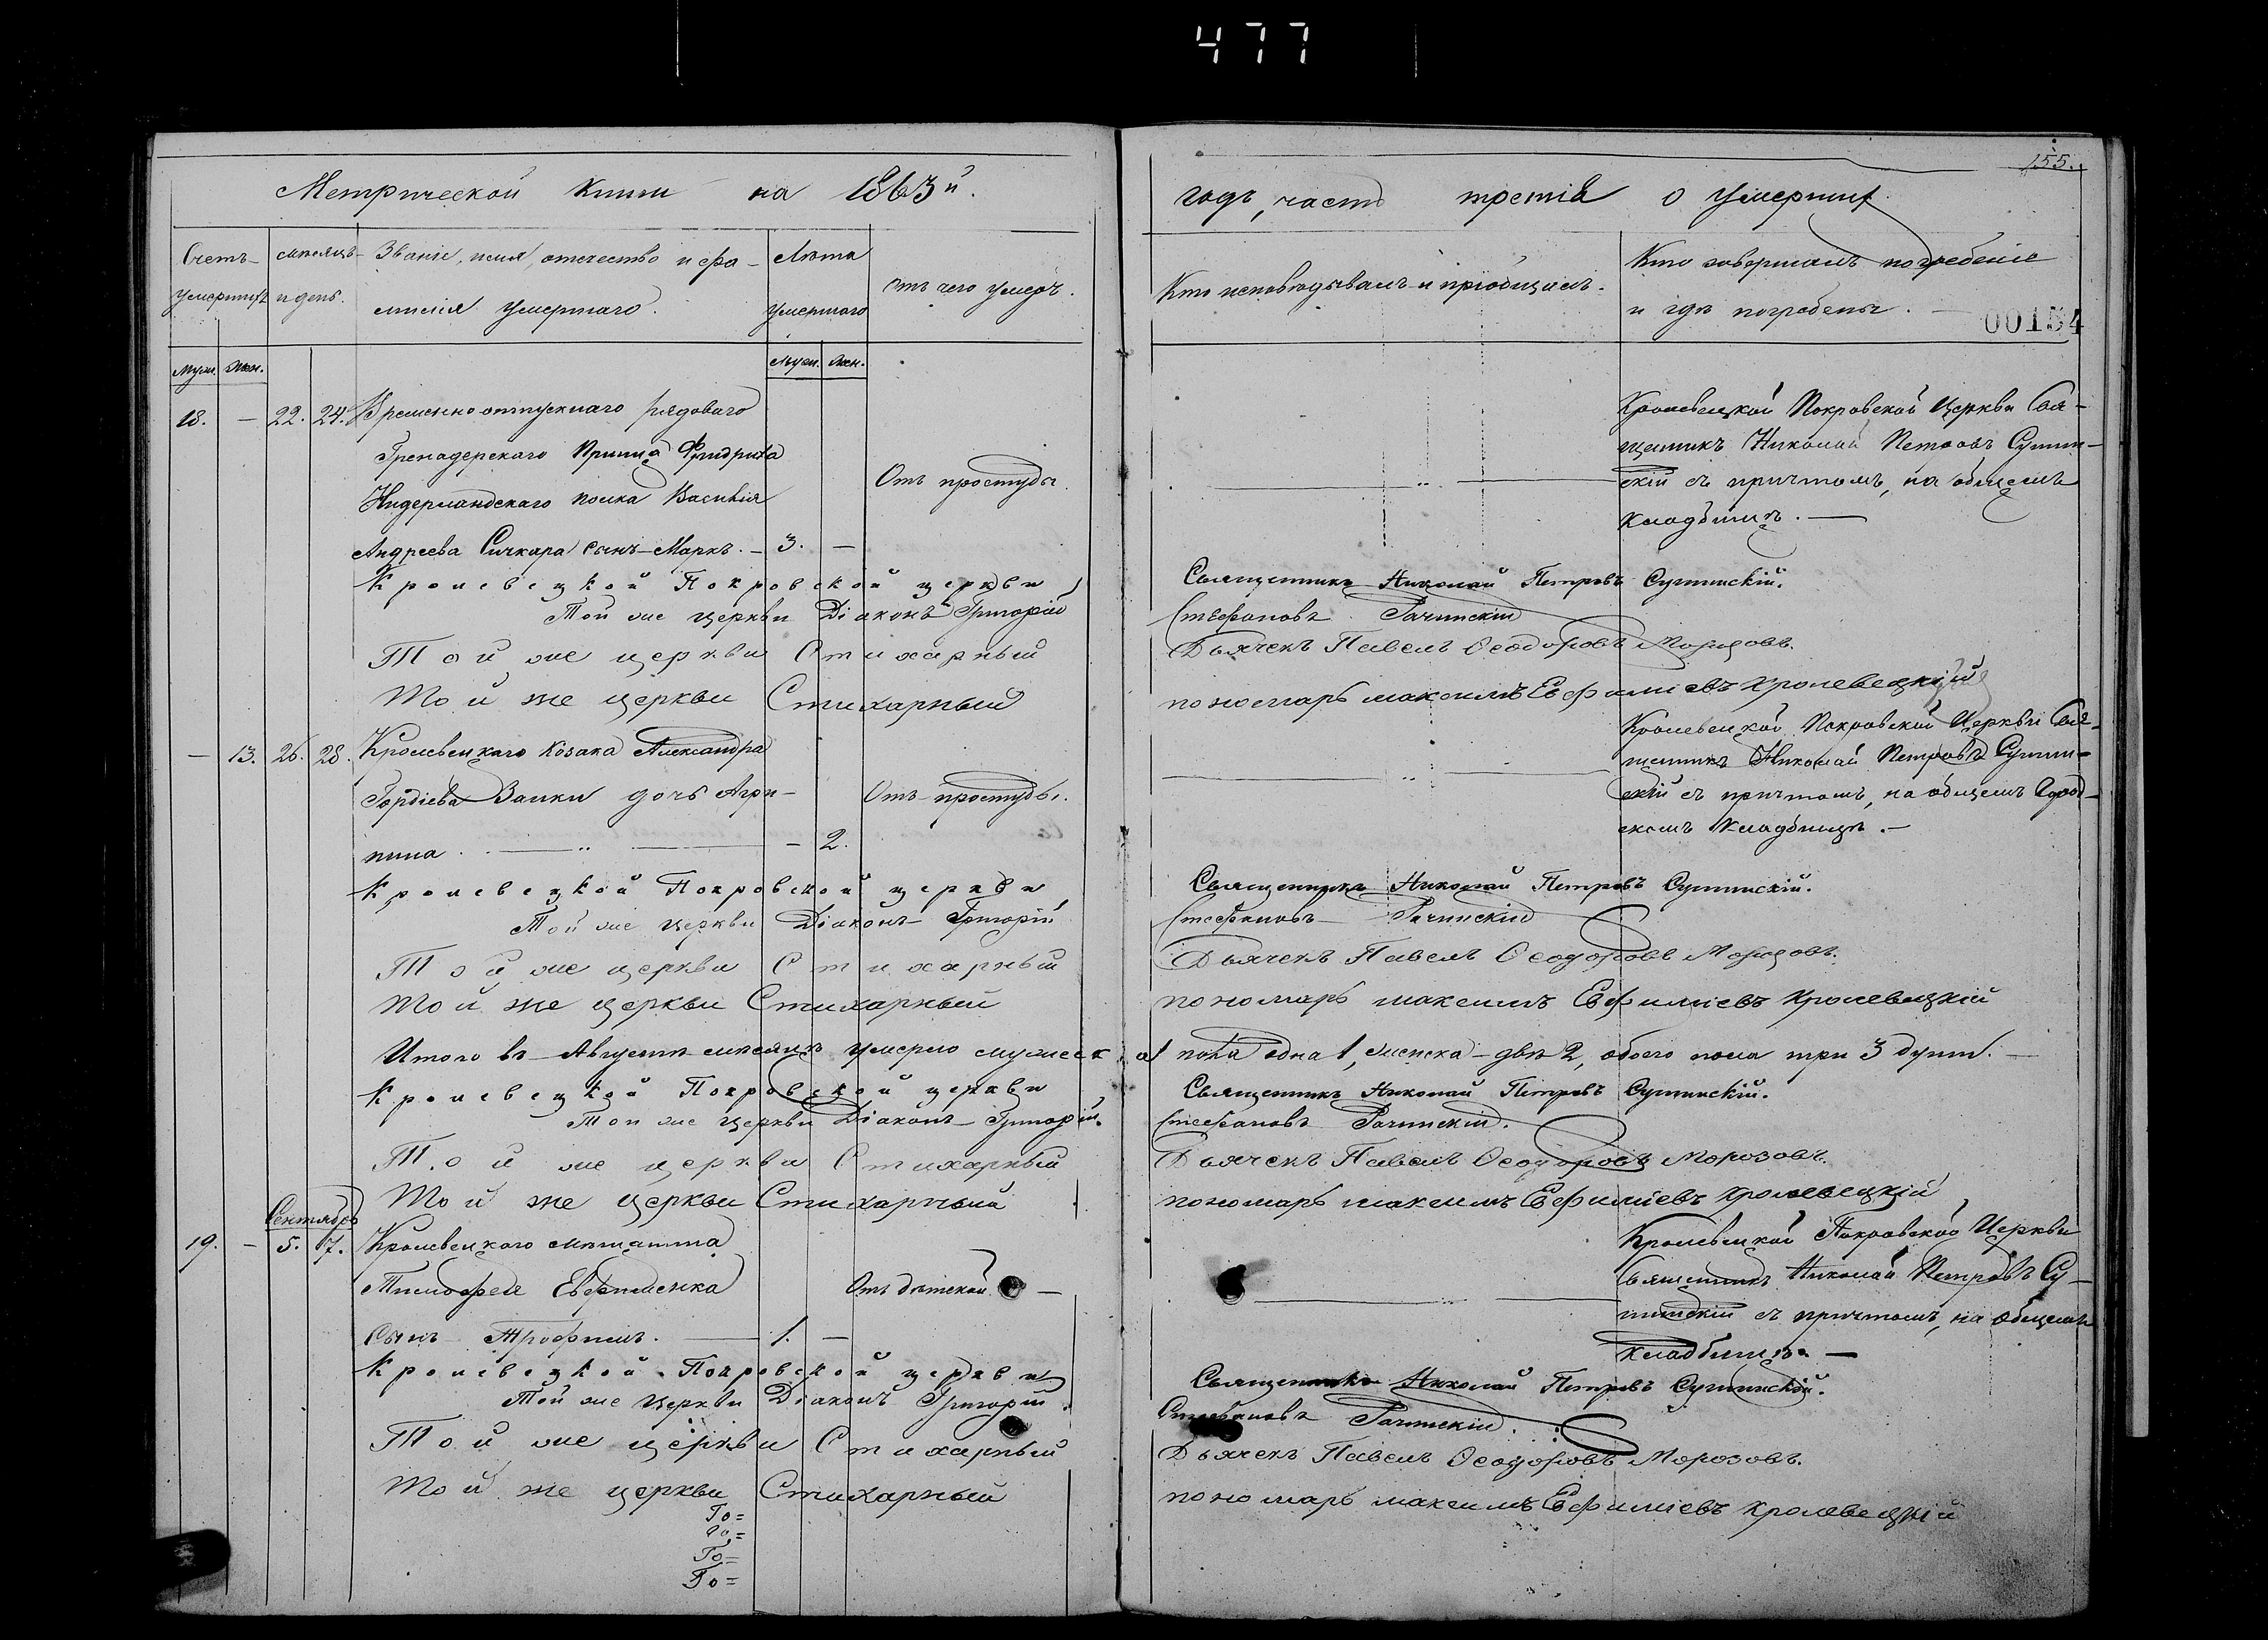 477
155.
Метрической книги на 1863й.
годъ, часть третія о умершихъ
Счетъ умершихъ
мѣсяцъ и день.
Званіе, имя, отчество и фамилія умершаго.
Лѣта умершаго
отъ чего умеръ.
Кто исповѣдывалъ и пріобщалъ.
Кто совершалъ погребеніе
и гдѣ погребены.
00154
Муж. Жен.
Муж. Жен.
18. — 22. 24. Временно отпускнаго рядоваго
Гренадерскаго Принца Фридриха
Нидерландскаго полка Василія
Андреева Сичкара сынъ Маркъ. — 3. —
Отъ простуды.
Кролевецкой Покровской Церкви Свя-
щенникъ Николай Петровъ Сушин-
скій съ причтомъ, на общемъ
кладбищѣ. —
Кролевецкой Покровской церкви Священникъ Николай Петровъ Сушинскій.
Той же церкви Діаконъ Григорій Стефановъ Рачинскій
Той же церкви Стихарный Дьячекъ Павелъ Ѳеодоровъ Морозовъ.
Той же церкви Стихарный пономарь максимъ Евфиміевъ Кролевецкій
— 13. 26. 28. Кролевецкаго козака Александра
Гордіева Заики дочь Агри-
пина — 2.
Отъ простуды.
Кролевецкой Покровской Церкви Свя-
щенникъ Николай Петровъ Сушин-
скій съ причтомъ, на общемъ Город-
скомъ кладбищѣ. —
Кролевецкой Покровской церкви Священникъ Николай Петровъ Сушинскій.
Той же церкви Діаконъ Григорій Стефановъ Рачинскій
Той же церкви Стихарный Дьячекъ Павелъ Ѳеодоровъ Морозовъ.
Той же церкви Стихарный пономарь максимъ Евфиміевъ Кролевецкій
Итого въ Августѣ мѣсяцѣ умерло мужеска пола одна 1, женска двѣ 2, обоего пола три 3 души. —
Кролевецкой Покровской церкви Священникъ Николай Петровъ Сушинскій.
Той же церкви Діаконъ Григорій. Стефановъ Рачинскій.
Той же церкви Стихарный Дьячекъ Павелъ Ѳеодоровъ Морозовъ.
Той же церкви Стихарный пономарь максимъ Евфиміевъ Кролевецкій
Сентябрь
19. — 5. 7. Кролевецкаго мѣщанина
Тимофея Евфименка
сынъ Трофимъ. — 1. —
Отъ дѣтской
Кролевецкой Покровской Церкви
Священникъ Николай Петровъ Су-
шинскій съ причтомъ, на общемъ
кладбищѣ. —
Кролевецкой Покровской церкви Священникъ Николай Петровъ Сушинскій.
Той же церкви Діаконъ Григорій. Стефановъ Рачинскій.
Той же церкви Стихарный Дьячекъ Павелъ Ѳеодоровъ Морозовъ.
Той же церкви Стихарный пономарь максимъ Евфиміевъ Кролевецкій
То=
То=
То=
То=